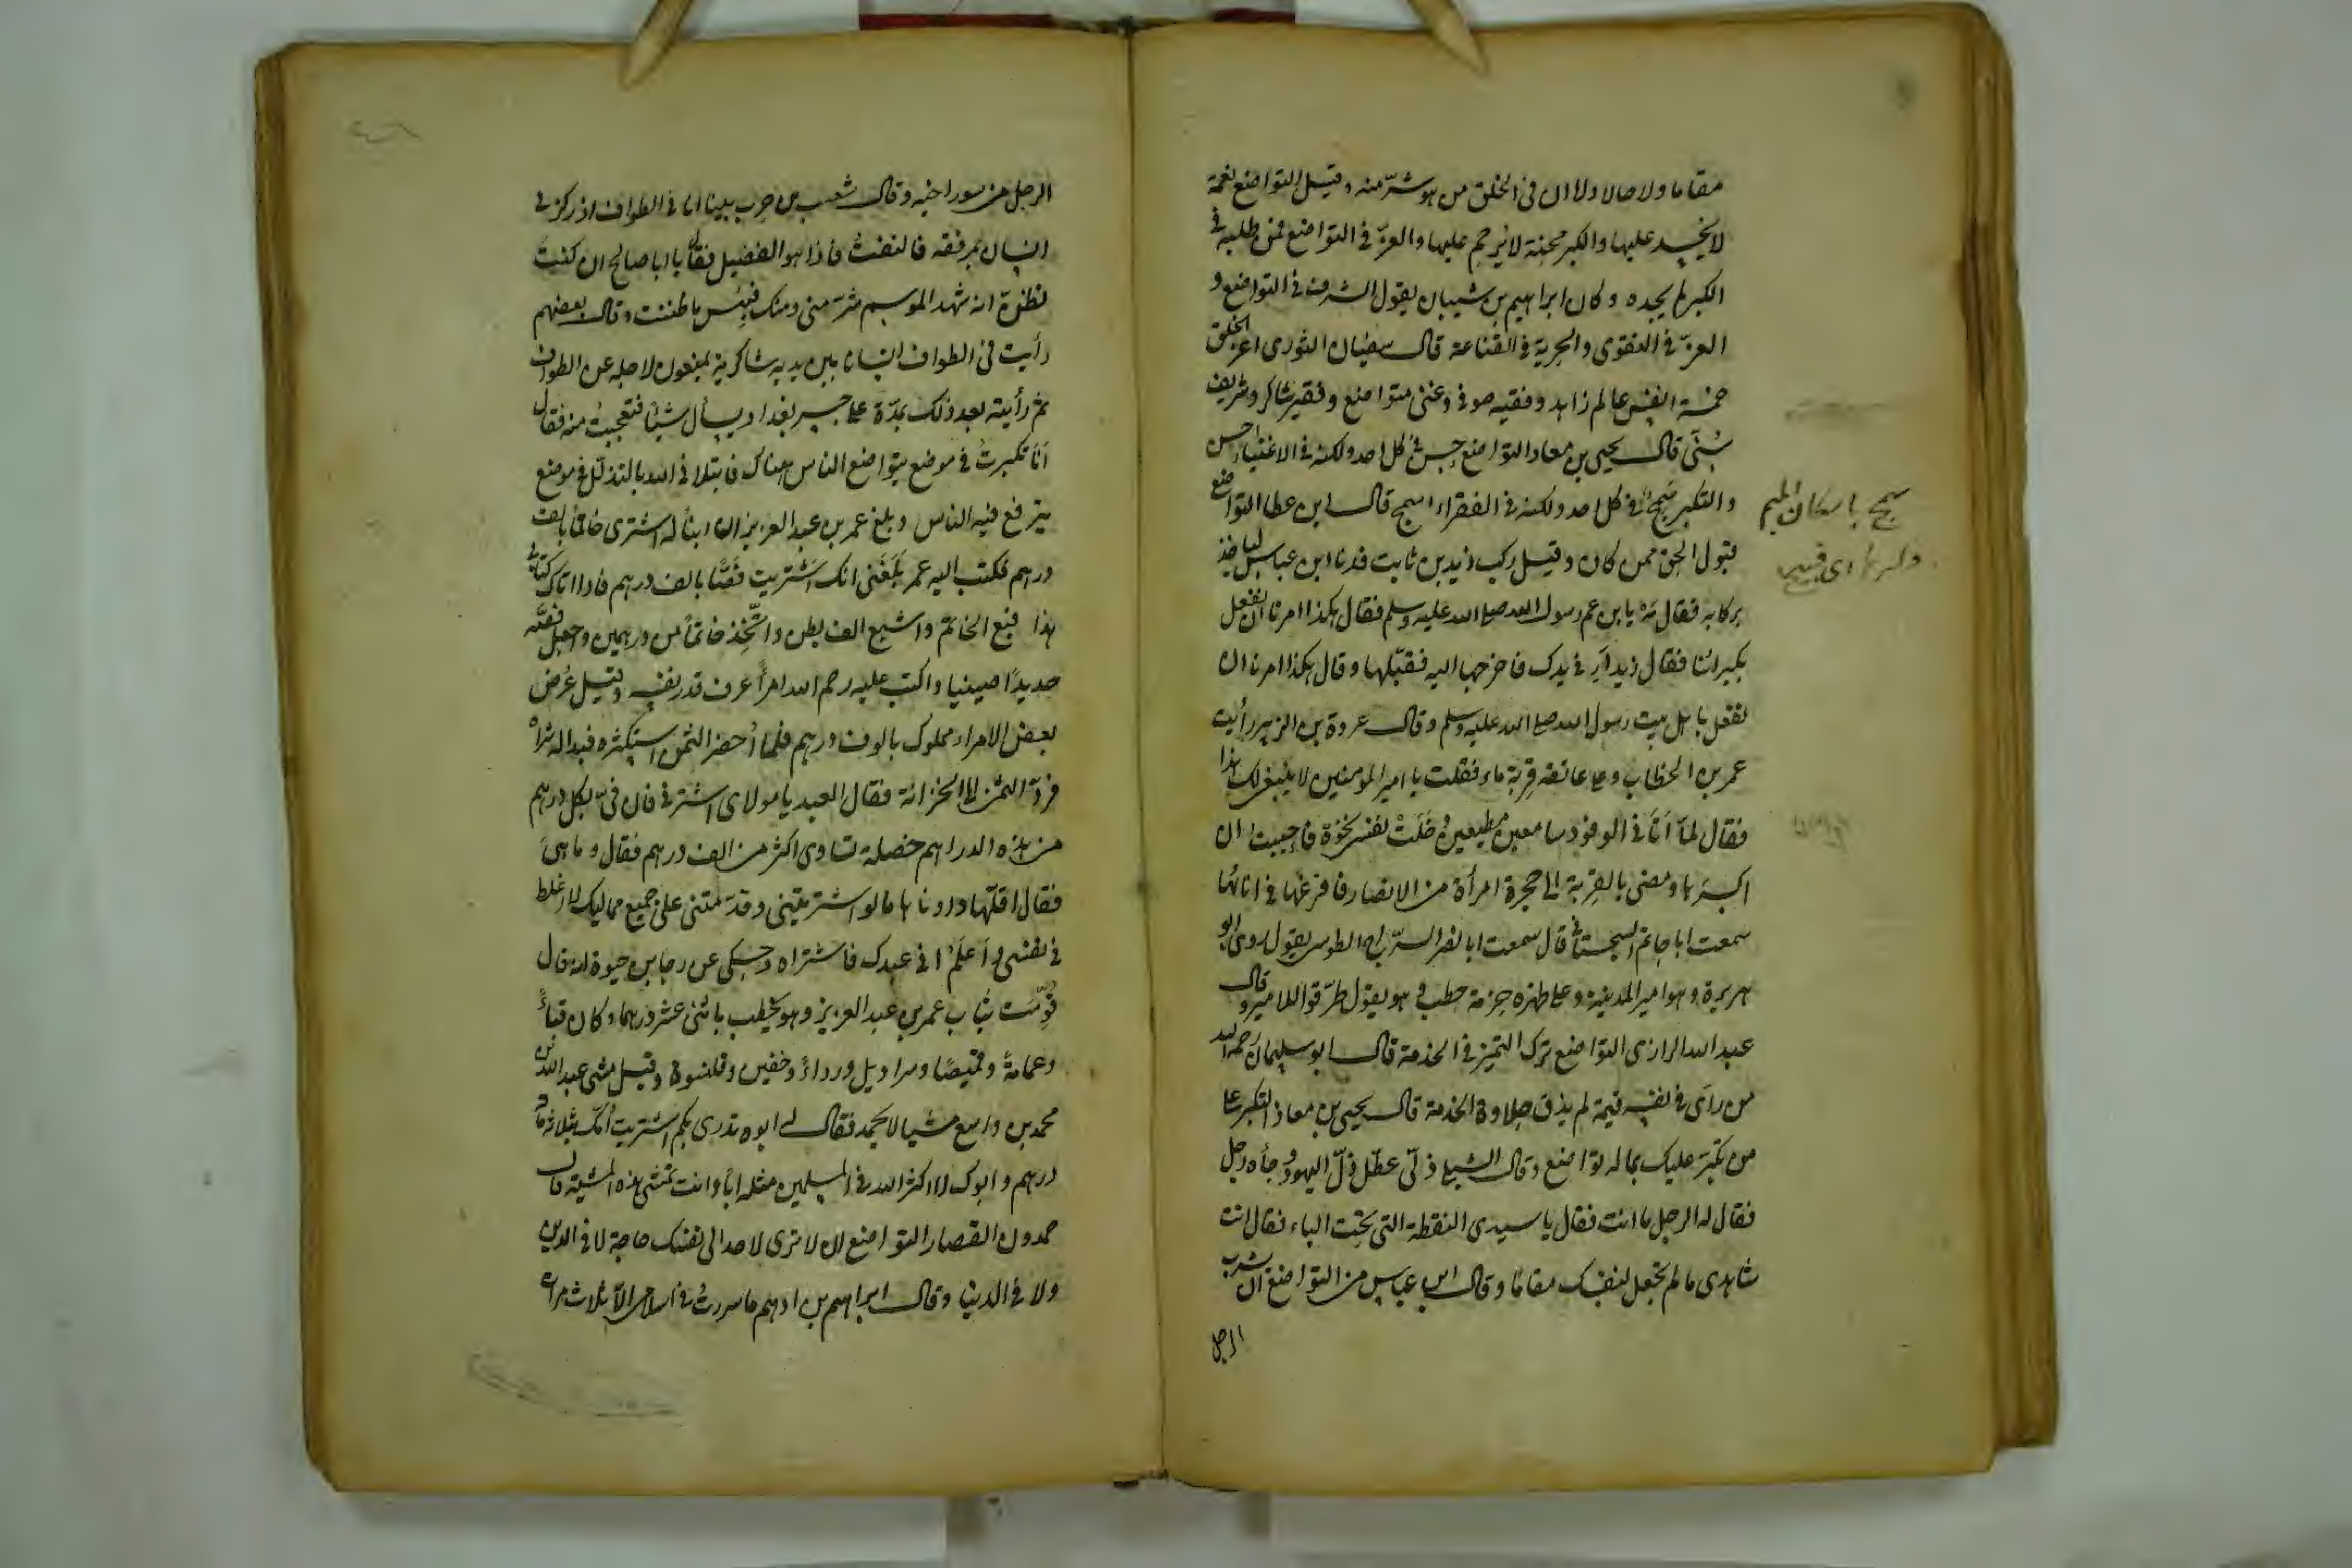 مقاما ولا حالا ولا ان في الخلق من هو شرّ منه وقيل التواضع نعمة
لا يحسد عليها والكبر محنة لا يرحم عليها والعزّ في التواضع فمن طلبه في
الكبر لم يجده وكان ابراهيم بن شيبان يقول الشرف في التواضع و
العزّ في التقوى والحرية في القناعة قال سفيان الثوري اعز الخلق
خمسة انفس عالم زاهد وفقيه صوفي وغني متواضع وفقير شاكر وشريف
سُنّى قال يحيى بن معاد التواضع حسن في كل احد ولكنه في الاغنياء احسن
والتكبر سَمِجٌ في كل احد ولكنه في الفقراء اسمج قال ابن عطا التواضع
قبول الحق ممن كان وقيل ركب زيد بن ثابت فدنا ابن عباس لياخذ
بركابه فقال مَهْ يا بن عم رسول الله صلى الله عليه وسلم فقال هكذا امرنا ان نفعل
بكبرائنا فقال زيد اَرِنى يدك فاخرجها اليه فقبّلها وقال هكذا امرنا ان
نفعل باهل بيت رسول الله صلى الله عليه وسلم وقال عروة بن الزبير رأيت
عمر بن الخطاب وعلى عاتقه قِربة ماء فقلت يا امير المومنين لا ينبغى لك هذا
فقال لمّا اَتَانى الوفود سامعين مطيعين دَخَلَتْ نفسى نخوة فاحببت ان
اكسرها ومضى بالقربة الى حجرة امرأة من الانصار فافرغها في انائها
سمعت ابا حاتم السجستاني قال سمعت ابا نصر السرّاج الطوسى يقول روى ابو
هريرة وهو امير المدينة وعلى ظهره حزمة حطب وهو يقول طرّقوا للامير وقال
عبد الله الرازى التواضع ترك التميز في الخدمة قال ابو سليمان رحمه الله
من رأى في نفسه قيمة لم يذق حلاوة الخدمة قال يحيى بن معاذ التكبر على
من تكبّر عليك بماله تواضع وقال الشبلى ذلّى عطّل ذلّ اليهود وجأه رجل
فقال له الرجل ما انت فقال يا سيدى النقطة التى تحت الباء فقال انت
شاهدى ما لم تجعل لنفسك مقامًا وقال ابن عباس من التواضع ان يشرب
الرجل
سمج باسكان الميم
وكسرها اى قبيح
الرجل من سور اخيه وقال شعيب بن حرب بينا انا في الطواف اذ ركزنى
انسان بمرفقه فالتفتُ فاذا هو الفضيل فقال يا ابا صالح ان كنتَ
تظنّ انه شهد الموسم شرّ منى ومنك فبئس ما ظننت وقال بعضهم
رأيت في الطواف انسانا بين يديه شاكرية يمنعون لاجله عن الطواف
ثم رأيته بعد ذلك بمدّة على جسر بغداد يسأل شيئًا فتعجبتُ منه فقال
اَنَا تكبرتُ في موضع يتواضع الناس هناك فابتلانى الله بالتذلّل في موضع
يترفع فيه الناس وبلغ عمر بن عبد العزيز ان ابنًا له اشترى خاتمًا بالف
درهم فكتب اليه عمر بَلَغَنى انك اشتريت فَصًّا بالف درهم فاذا اتاك كتابى
هذا فبع الخاتم واشبع الف بطن واتّخذ خاتمًا من درهمين واجعل فصّه
حديدًا صينيا واكتب عليه رحم الله امرأً عرف قدر نفسه وقيل عُرض
بعض الامراء مملوك بالوف درهم فلمّا اُحضر الثمن استكثره فبدا له شراه
فردّ الثمن الى الخزانة فقال العبد يا مولاى اشترنى فان فىّ بكل درهم
من هذه الدراهم خصلة تساوى اكثر من الف درهم فقال وما هى
فقال اقلّها وادونها ما لو اشتريتنى وقدّمتنى على جميع مماليك لا اغلط
في نفسى واَعلَمُ انى عبدك فاشتراه وحكى عن رجا بن حيوة انه قال
قُوِّمَت ثياب عمر بن عبد العزيز وهو يخطب باثنى عشر درهما وكان قباءً
وعمامةً وقميصًا وسراويل ورداءً وخفين وقلنسوة وقيل مشى عبد الله بن
محمد بن واسع مشيا لا يُحمد فقال له ابوه تدرى بكم اشتريت اُمّك بثلاثمائة
درهم وابوك لا اكثر الله في المسلمين مثله ابًا وانت تمشى هذه المشية قال
حمدون القصار التواضع ان لا ترى لاحد الى نفسك حاجة لا في الدين
ولا في الدنيا وقال ابراهيم بن ادهم ما سررتُ في اسلامى الّا ثلاث مرات